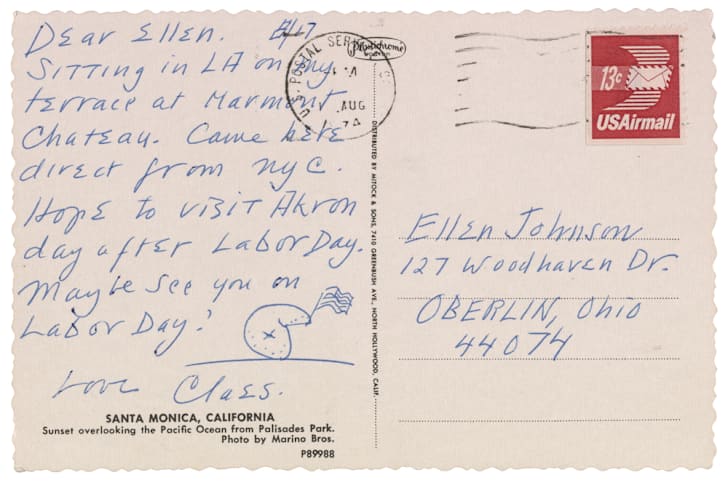 Dear Ellen. 8/17
Sitting in LA on my
terrace at Marmont
Chateau. Came here
direct from NYC.
Hope to visit Akron
day after Labor Day.
Maybe see you on
Labor Day!
Love Claes.
SANTA MONICA, CALIFORNIA
Sunset overlooking the Pacific Ocean from Palisades Park.
Photo by Marino Bros.
P89988
Plastichrome
U.S. POSTAL SERVICE
AUG
DISTRIBUTED BY MITOCK & SONS, 7410 GREENBUSH AVE., NORTH HOLLYWOOD, CALIF.
13c
USAirmail
Ellen Johnson
127 Woodhaven Dr.
OBERLIN, Ohio
44074